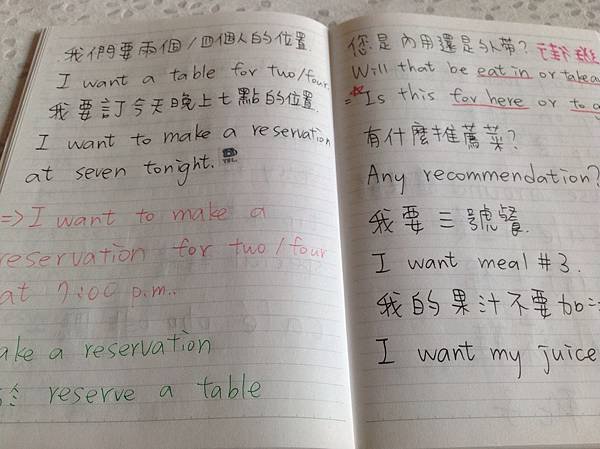 我們要兩個/四個人的位置.
I want a table for two/four.
我要訂今天晚上七點的位置.
I want to make a reservation
at seven tonight. TEL.
=> I want to make a
reservation for two/four
at 7:00 p.m..
make a reservation
reserve a table
您是內用還是外帶?
Will that be eat in or takeou
Is this for here or to g
有什麼推薦菜?
Any recommendation?
我要三號餐.
I want meal #3.
我的果汁不要加
I want my juice